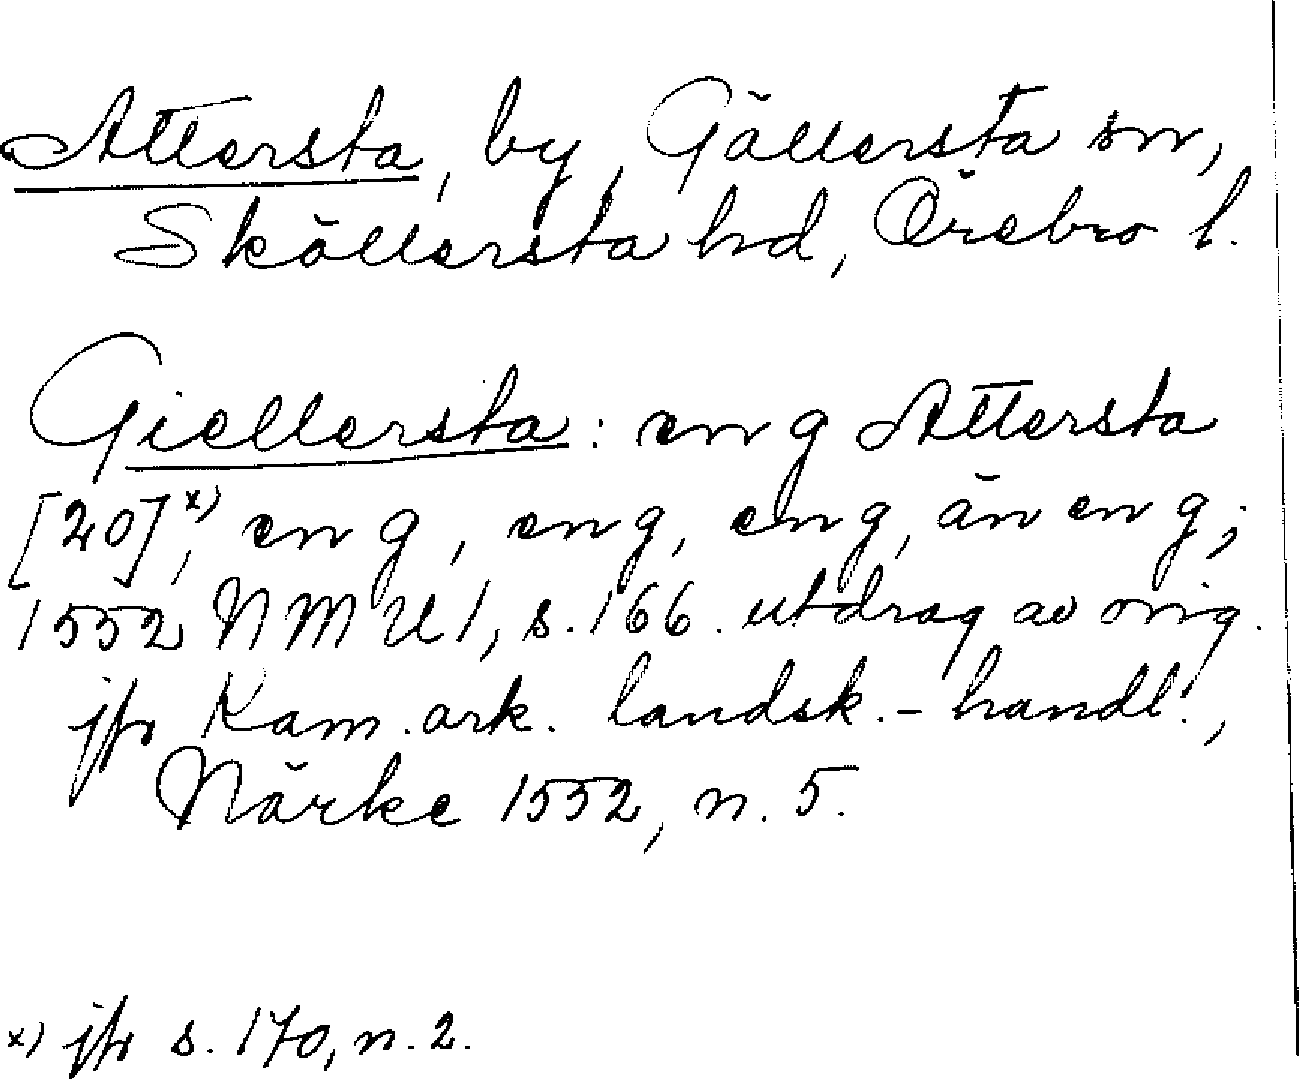 Attersta, by, Gällersta sn,
Sköllersta hd, Örebro l.
Giellersta: en g Attersta
[20],x) en g, eng, eng, än en g;
1552 NMU 1, s. 166. utdrag av orig.
jfr Kam. ark. landsk.-handl.,
Närke 1552, n. 5.
x) jfr s. 170, n. 2.